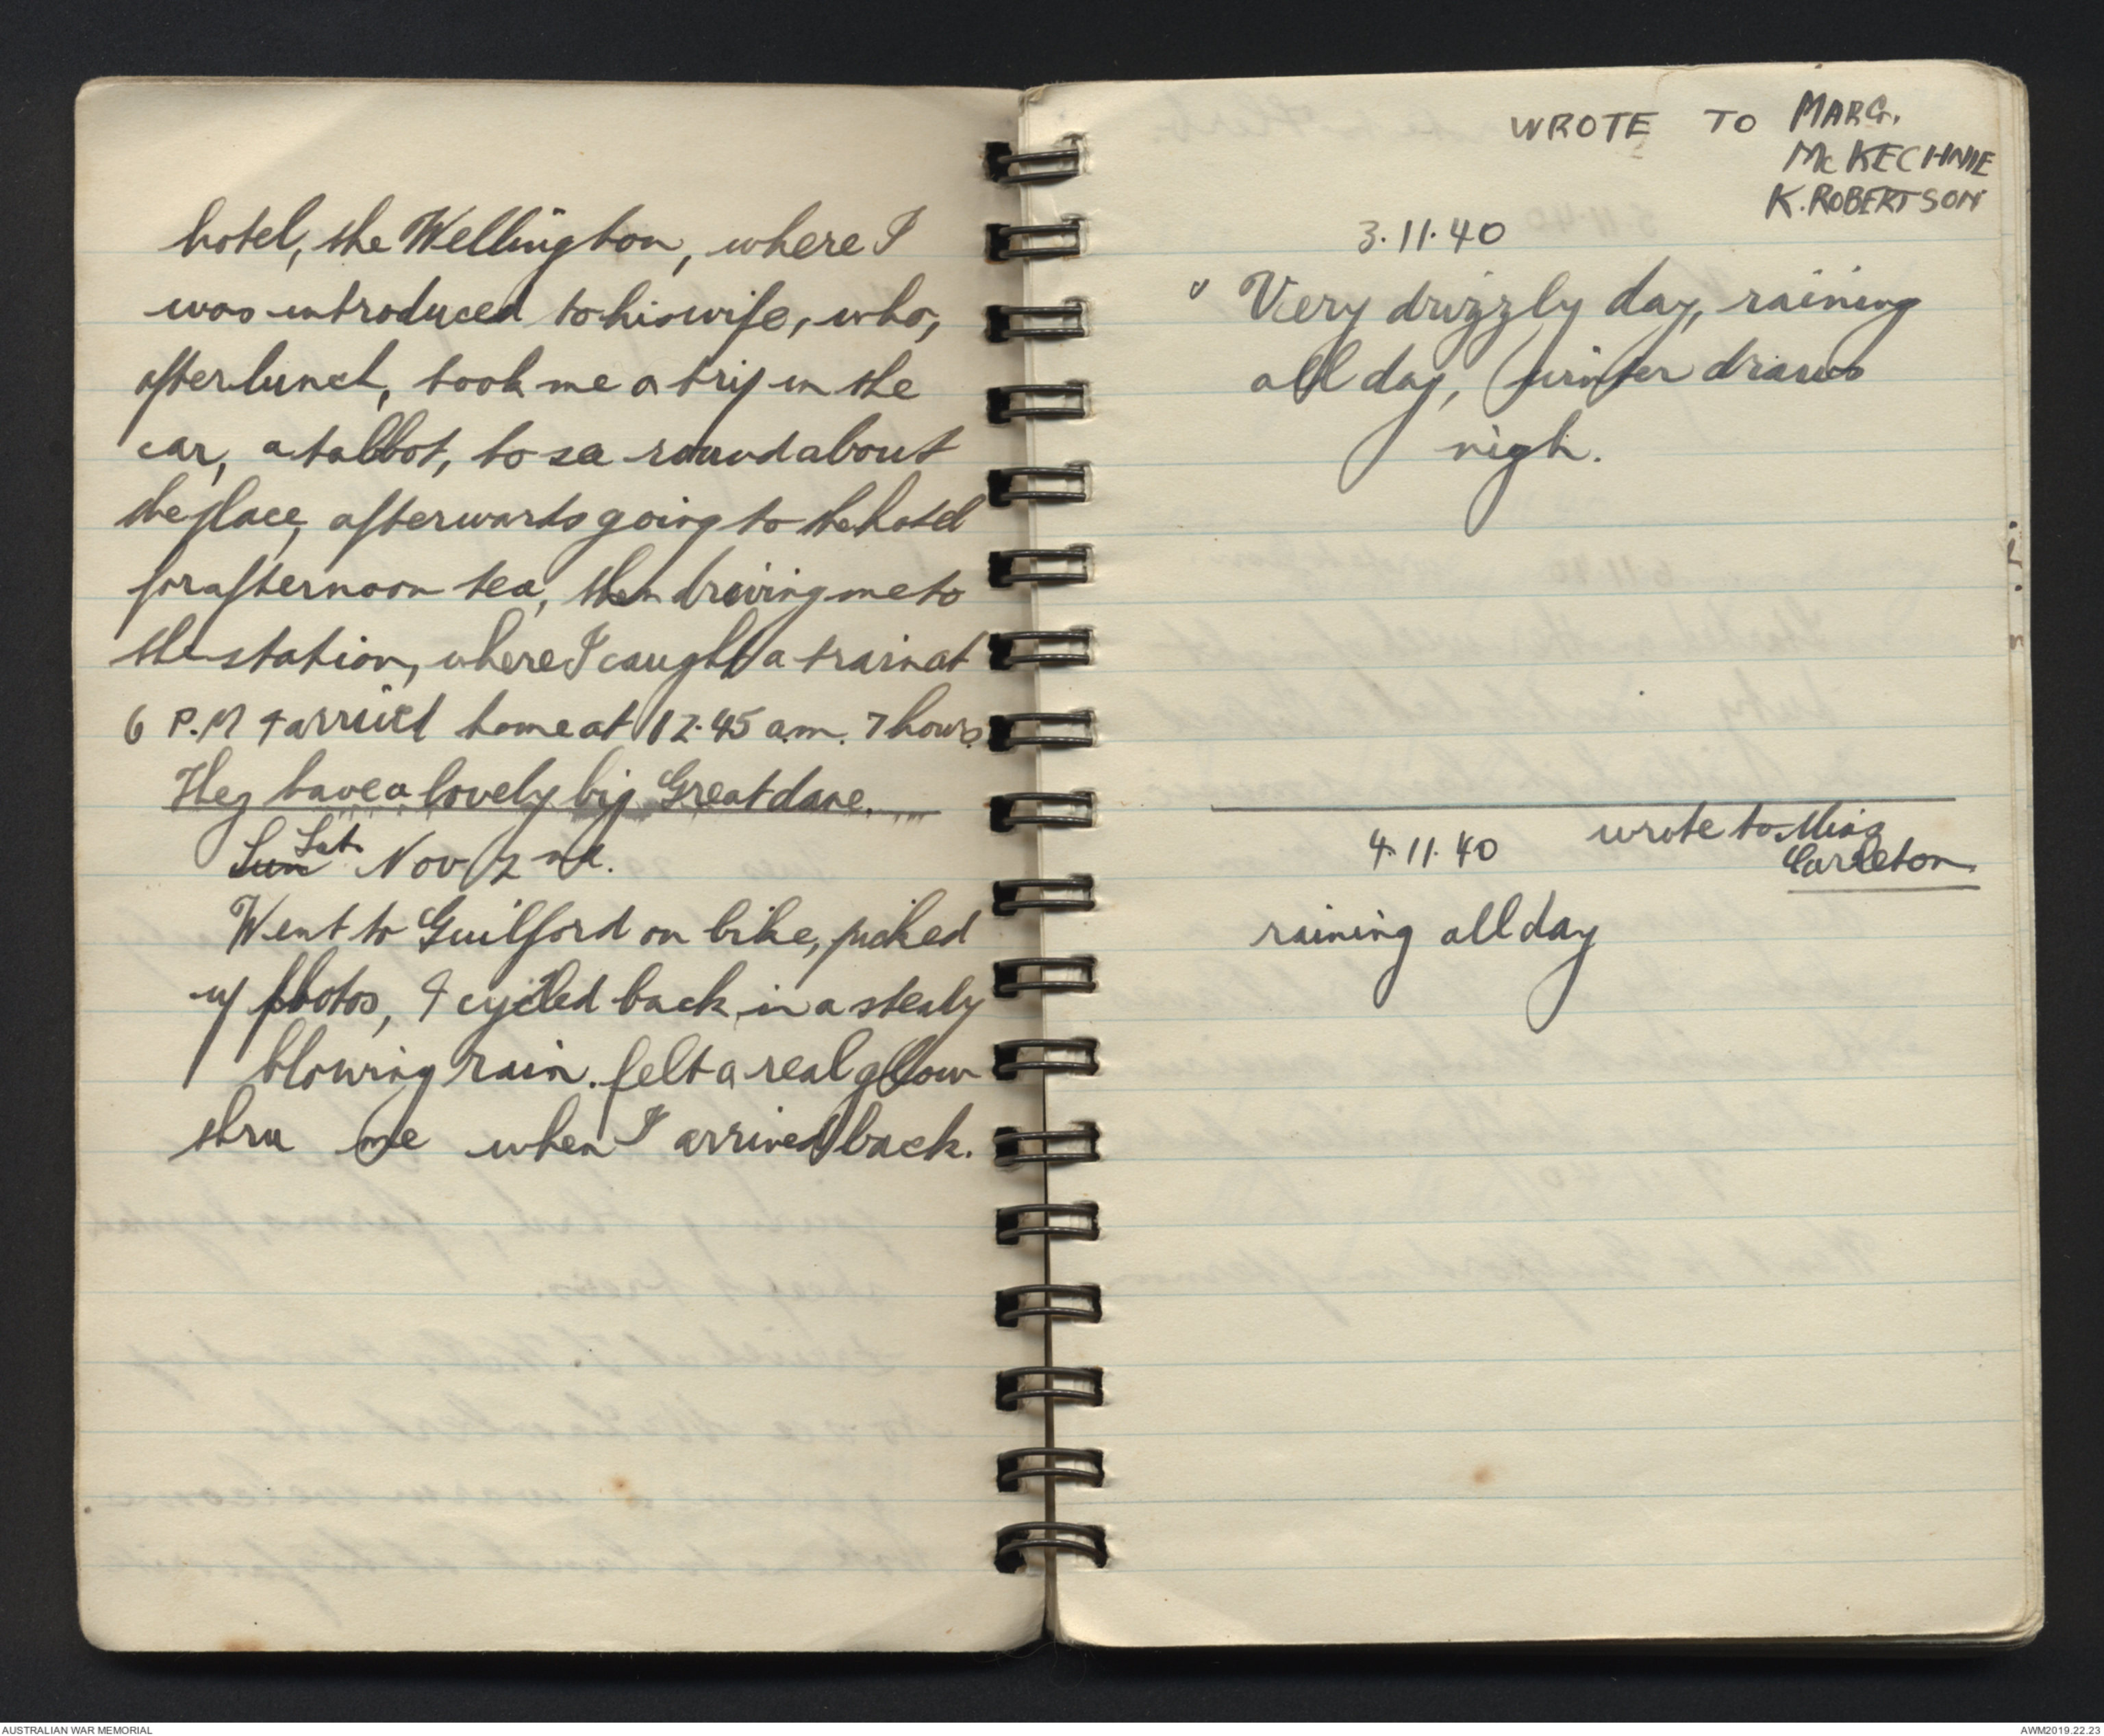 hotel, the Wellington, where I
was introduced to his wife, who,
after lunch, took me a trip in the
car, a talbot, to see round about
the place, afterwards going to the hotel
for afternoon tea, then driving me to
the station, where I caught a train at
6 P.M & arrived home at 12.45 a.m. 7 hours.
They have a lovely big Great dane.
Sun Sat Nov 2nd.
Went to Guilford on bike, picked
up photos, & cycled back in a steady
blowing rain. felt a real glow
thru me when I arrived back.
WROTE TO MARG.
McKECHNIE
K. ROBERTSON
3.11.40
Very drizzly day, raining
all day, winter draws
nigh.
4.11.40 wrote to Miss
Carleton.
raining all day
AUSTRALIAN WAR MEMORIAL
AWM2019.22.23